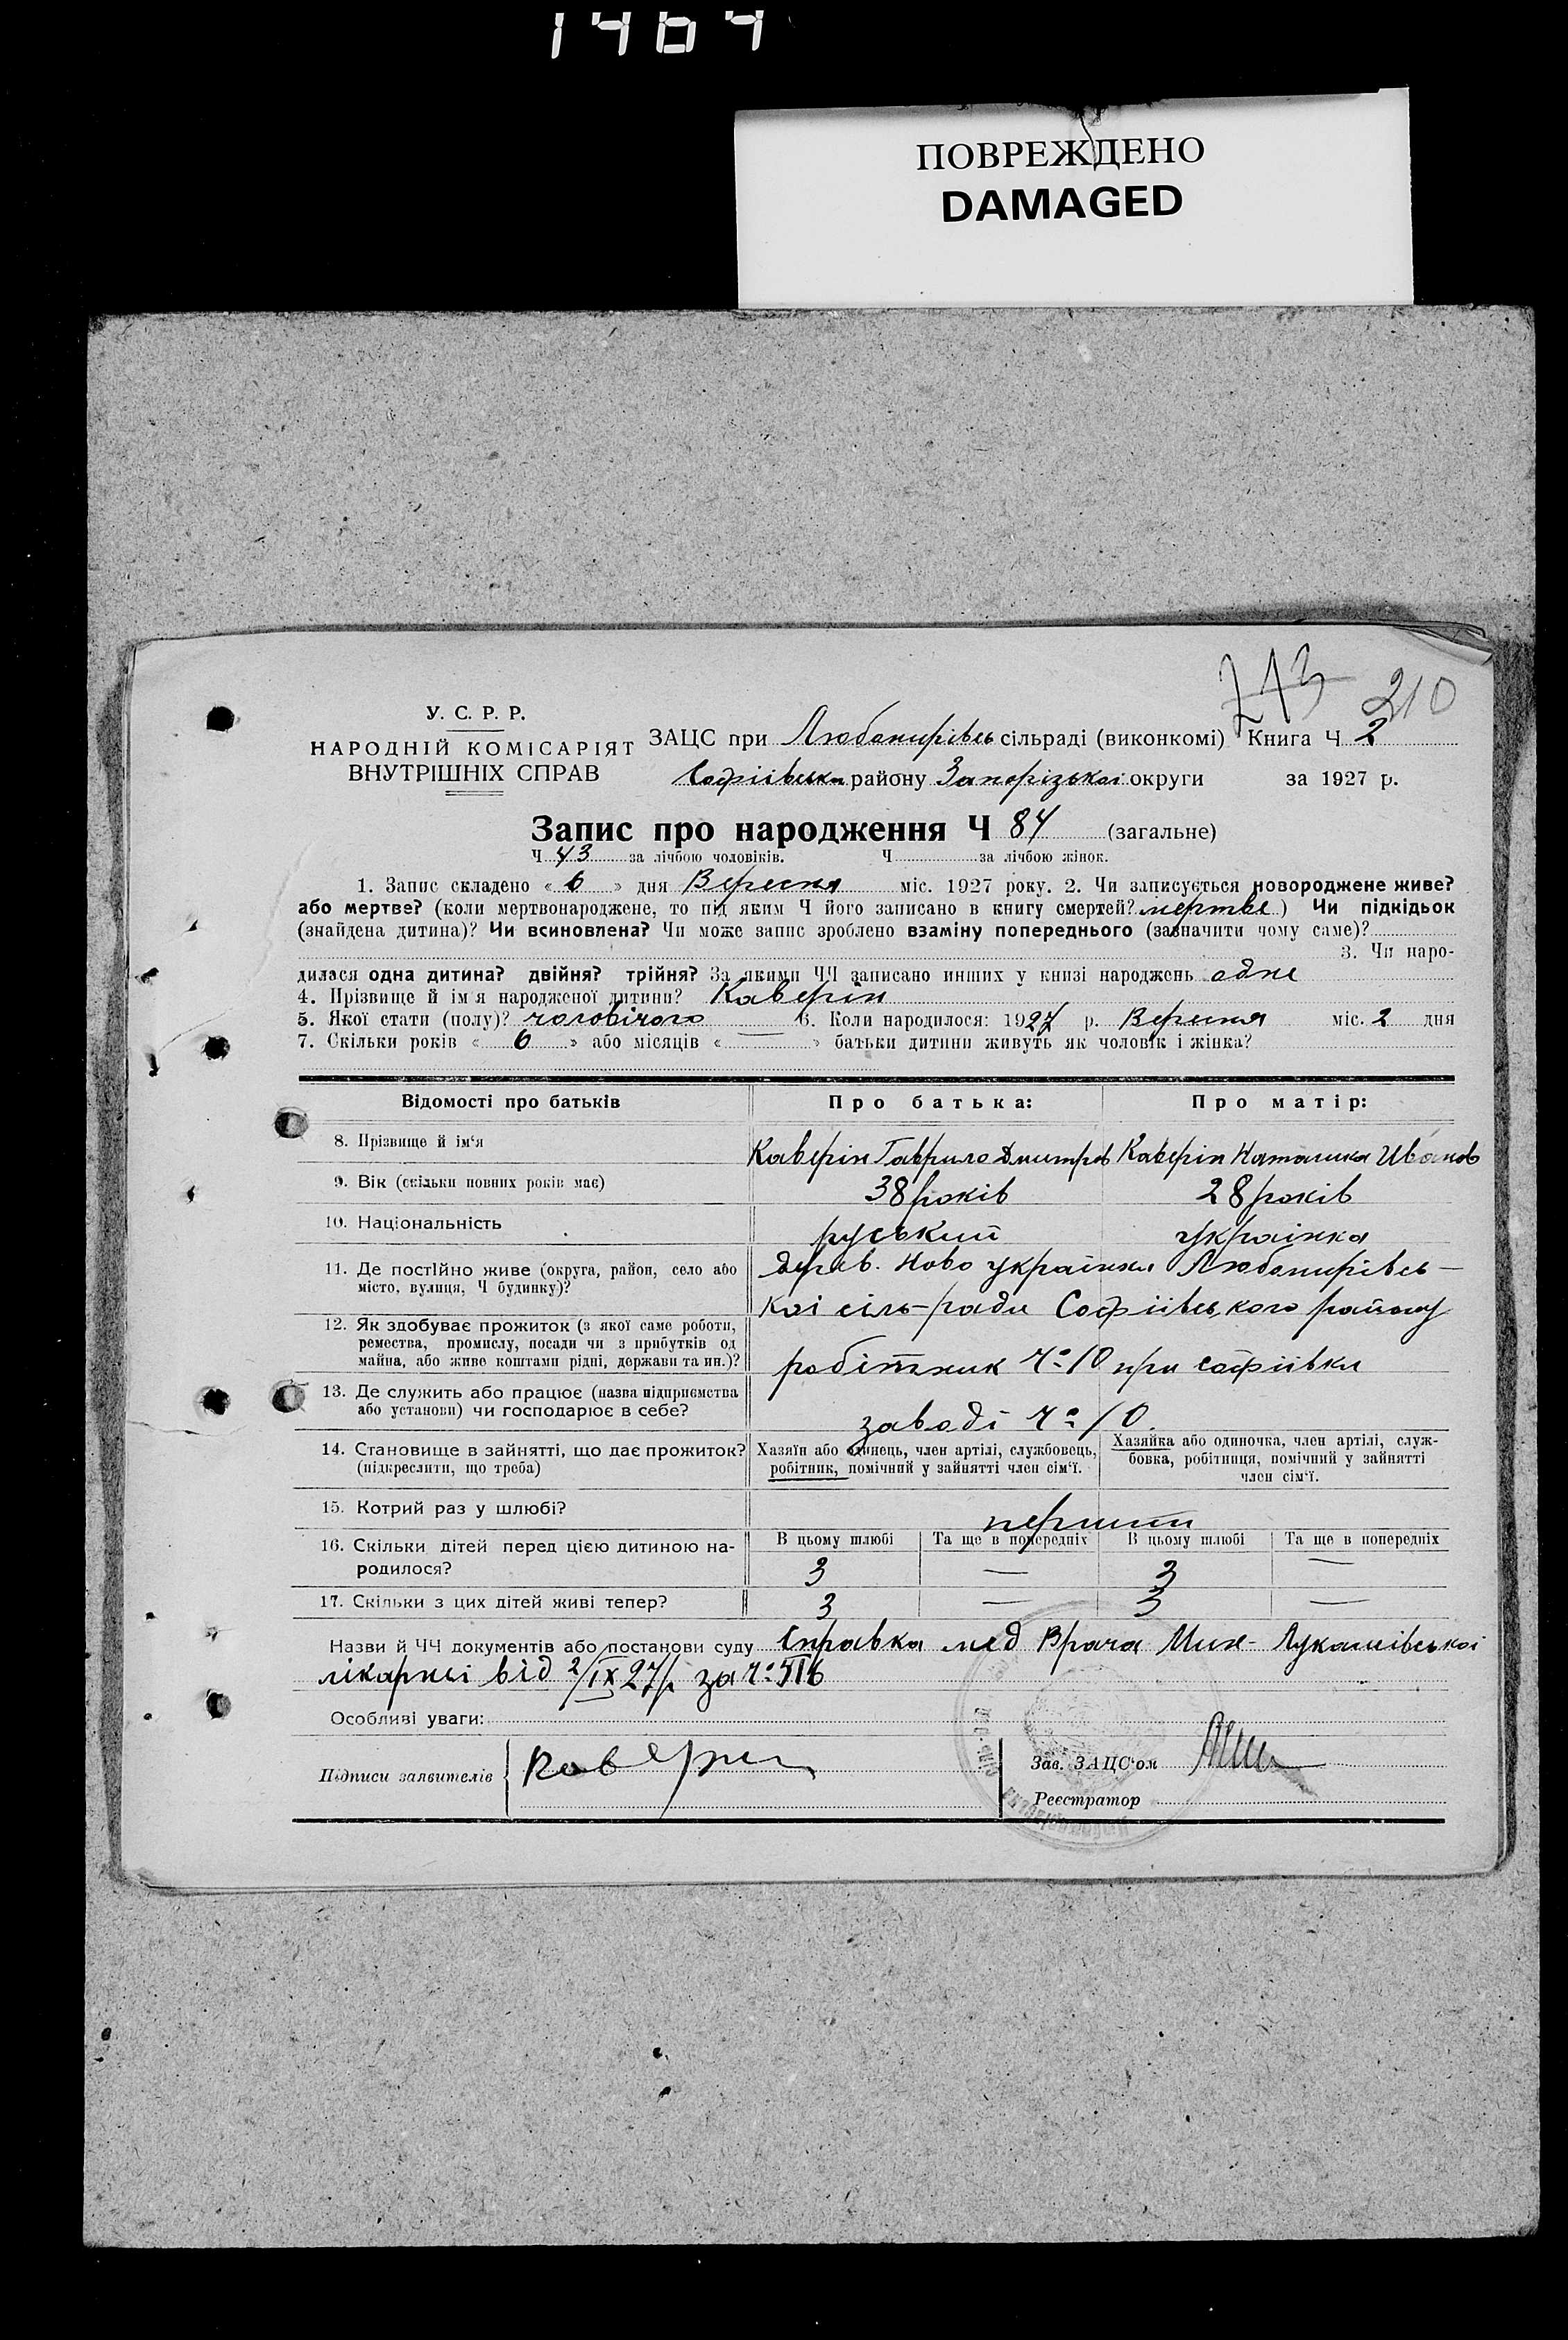 1464
ПОВРЕЖДЕНО
DAMAGED
213 210
У. С. Р. Р.
НАРОДНІЙ КОМІСАРІЯТ
ВНУТРІШНІХ СПРАВ
ЗАЦС при Любомирівсь сільраді (виконкомі) Книга Ч 2
Софіівська району Запорізькоі округи за 1927 р.
Запис про народження Ч 84 (загальне)
Ч 43 за лічбою чоловіків. Ч за лічбою жінок.
1. Запис складено « 6 » дня Вересня міс. 1927 року. 2. Чи записується новороджене живе?
або мертве? (коли мертвонароджене, то під яким Ч його записано в книгу смертей? мертве) Чи підкідьок
(знайдена дитина)? Чи всиновлена? Чи може запис зроблено взаміну попереднього (зазначити чому саме)?
3. Чи наро-
дилася одна дитина? двійня? трійня? За якими ЧЧ записано инших у книзі народжень одне
4. Прізвище й ім'я народженої дитини? Каверін
5. Якої стати (полу)? чоловічого 6. Коли народилося: 1927 р. Вересня міс. 2 дня
7. Скільки років « 6 » або місяців « — » батьки дитини живуть як чоловік і жінка?
Відомості про батьків Про батька: Про матір:
8. Прізвище й ім'я Каверін Гаврило Дмитров Каверін Наталика Иванов
9. Вік (скільки повних років має) 38 років 28 років
10. Національність руський украінка
11. Де постійно живе (округа, район, село або
місто, вулиця, Ч будинку)?
дерев. Ново украінка Любомирівсь-
коі сіль-ради Софіівського району
12. Як здобуває прожиток (з якої саме роботи,
ремества, промислу, посади чи з прибутків од
майна, або живе коштами рідні, держави та ин.)?
робітник Ч° 10 при софіівки
13. Де служить або працює (назва підприємства
або установи) чи господарює в себе?
заводі Ч° 10.
14. Становище в зайнятті, що дає прожиток?
(підкреслити, що треба)
Хазяїн або одинець, член артілі, службовець,
робітник, помічний у зайнятті член сім'ї.
Хазяйка або одиночка, член артілі, служ-
бовка, робітниця, помічний у зайнятті
член сім'ї.
15. Котрий раз у шлюбі? перший
16. Скільки дітей перед цією дитиною на-
родилося?
В цьому шлюбі Та ще в попередніх В цьому шлюбі Та ще в попередніх
3 — 3 —
17. Скільки з цих дітей живі тепер? 3 — 3 —
Назви й ЧЧ документів або постанови суду Справка мед Врача Мих-Лукашівськоі
лікарні від 2/IX 27 р. за Ч°
Особливі уваги:
Підписи заявителів Каверин
Зав. ЗАЦС'ом
Реєстратор